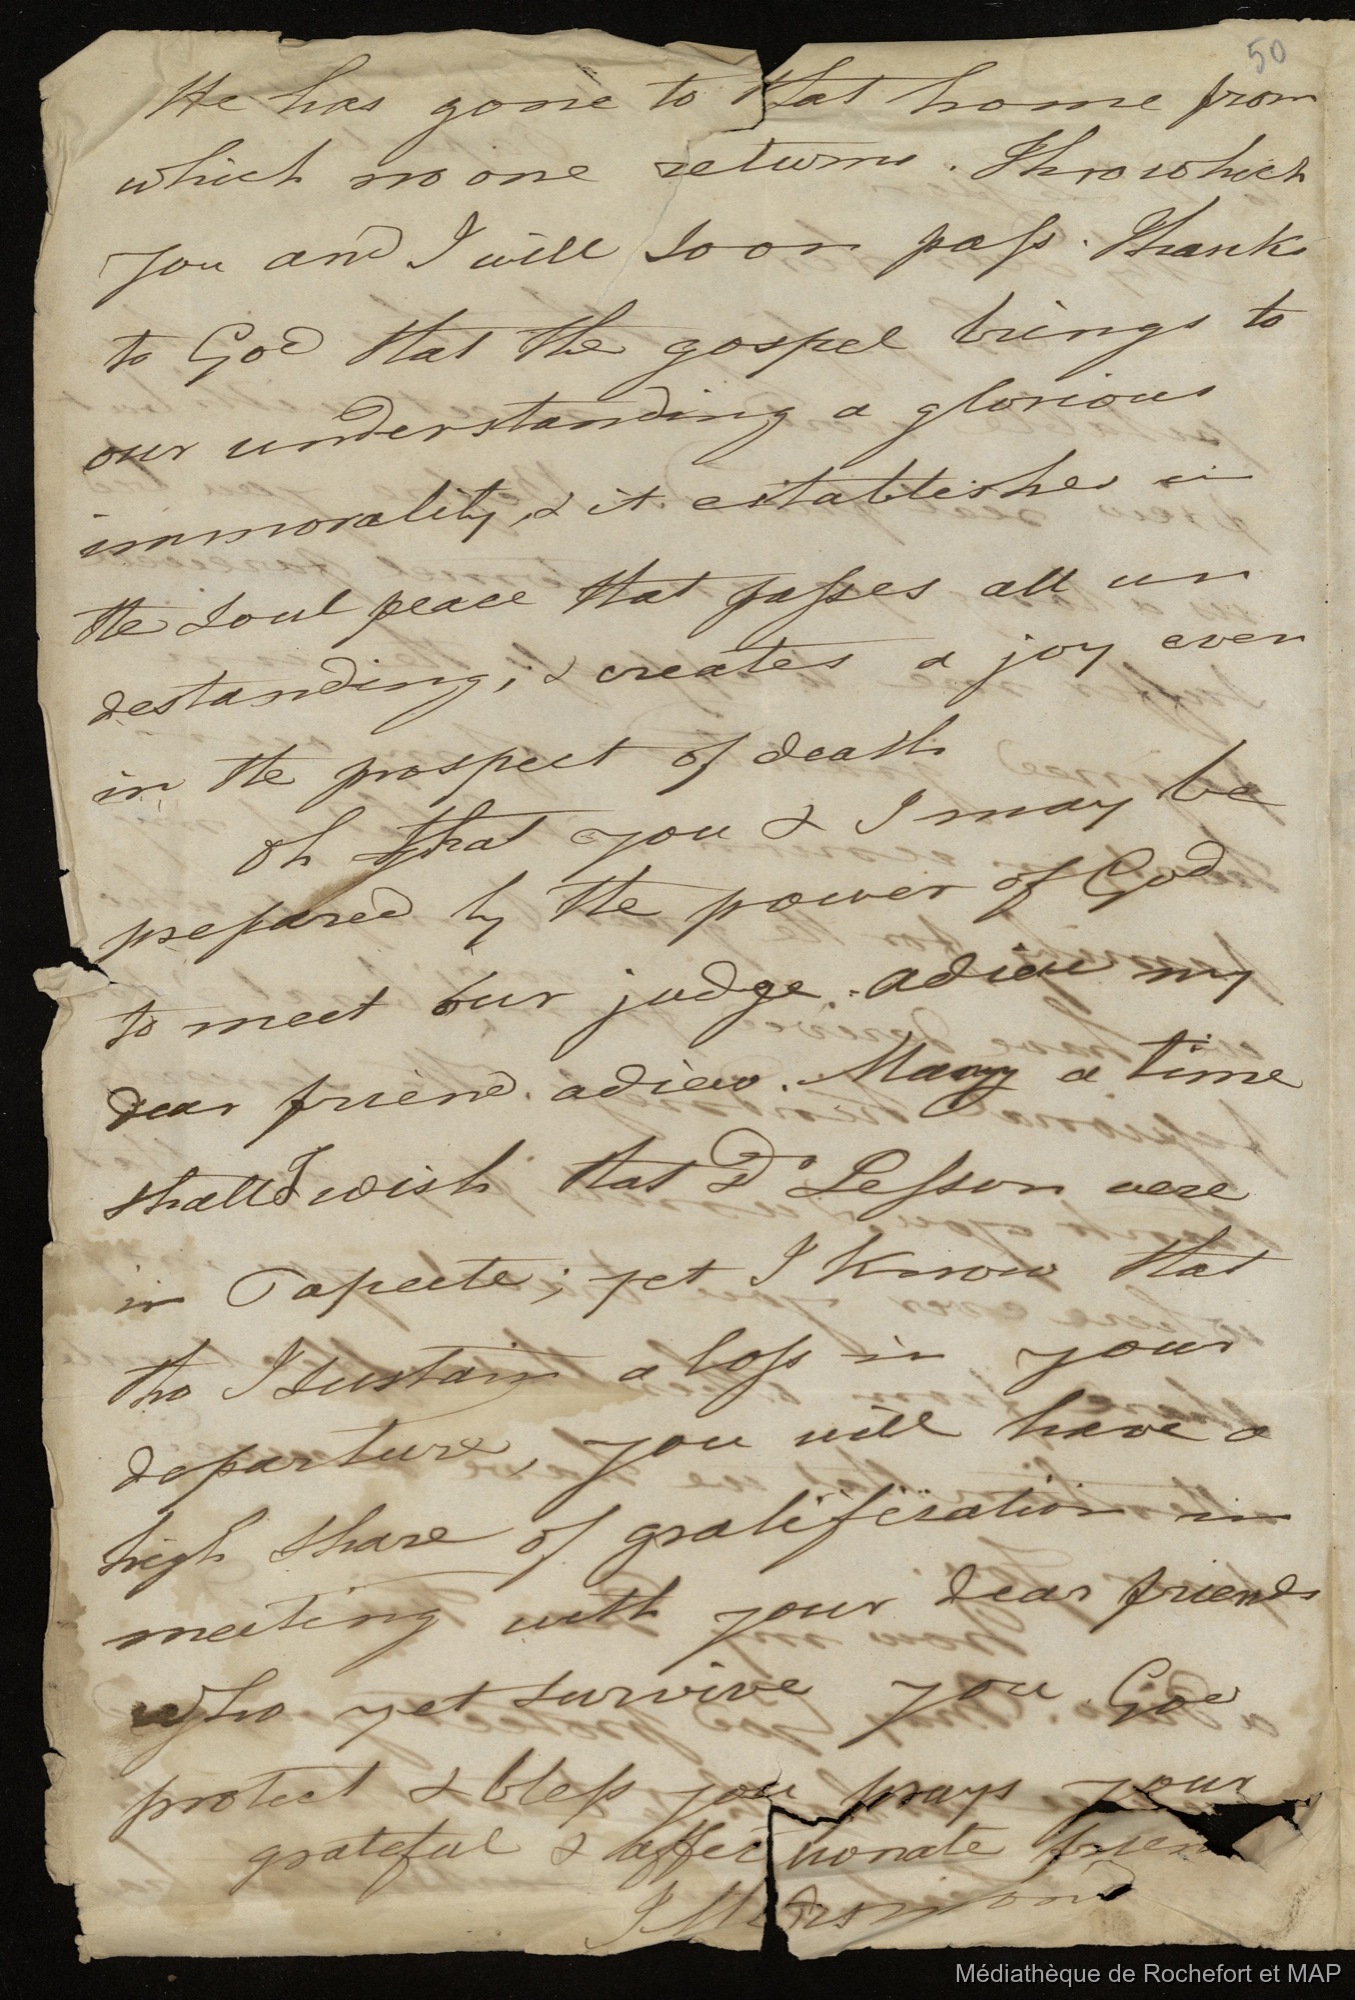 50
He has gone to that home from
which no one returns. Thro which
you and I will soon pass. Thanks
to God that the gospel brings to
our understanding a glorious
immorality, & it establishes in
the soul peace that passes all un
destanding; & creates a joy even
in the prospect of death
Oh that you & I may be
prepared by the power of God
to meet our judge. adieu my
dear friend. adieu. Many a time
shall I wish that Dr Lesson were
in Papeete; yet I know that
tho I sustain a loss in your
departure, you will have a
high share of gratification in
meeting with your dear friends
who yet survive you. God
protect & bless you prays your
grateful & affectionate friend
J M Orsmond
Médiathèque de Rochefort et MAP